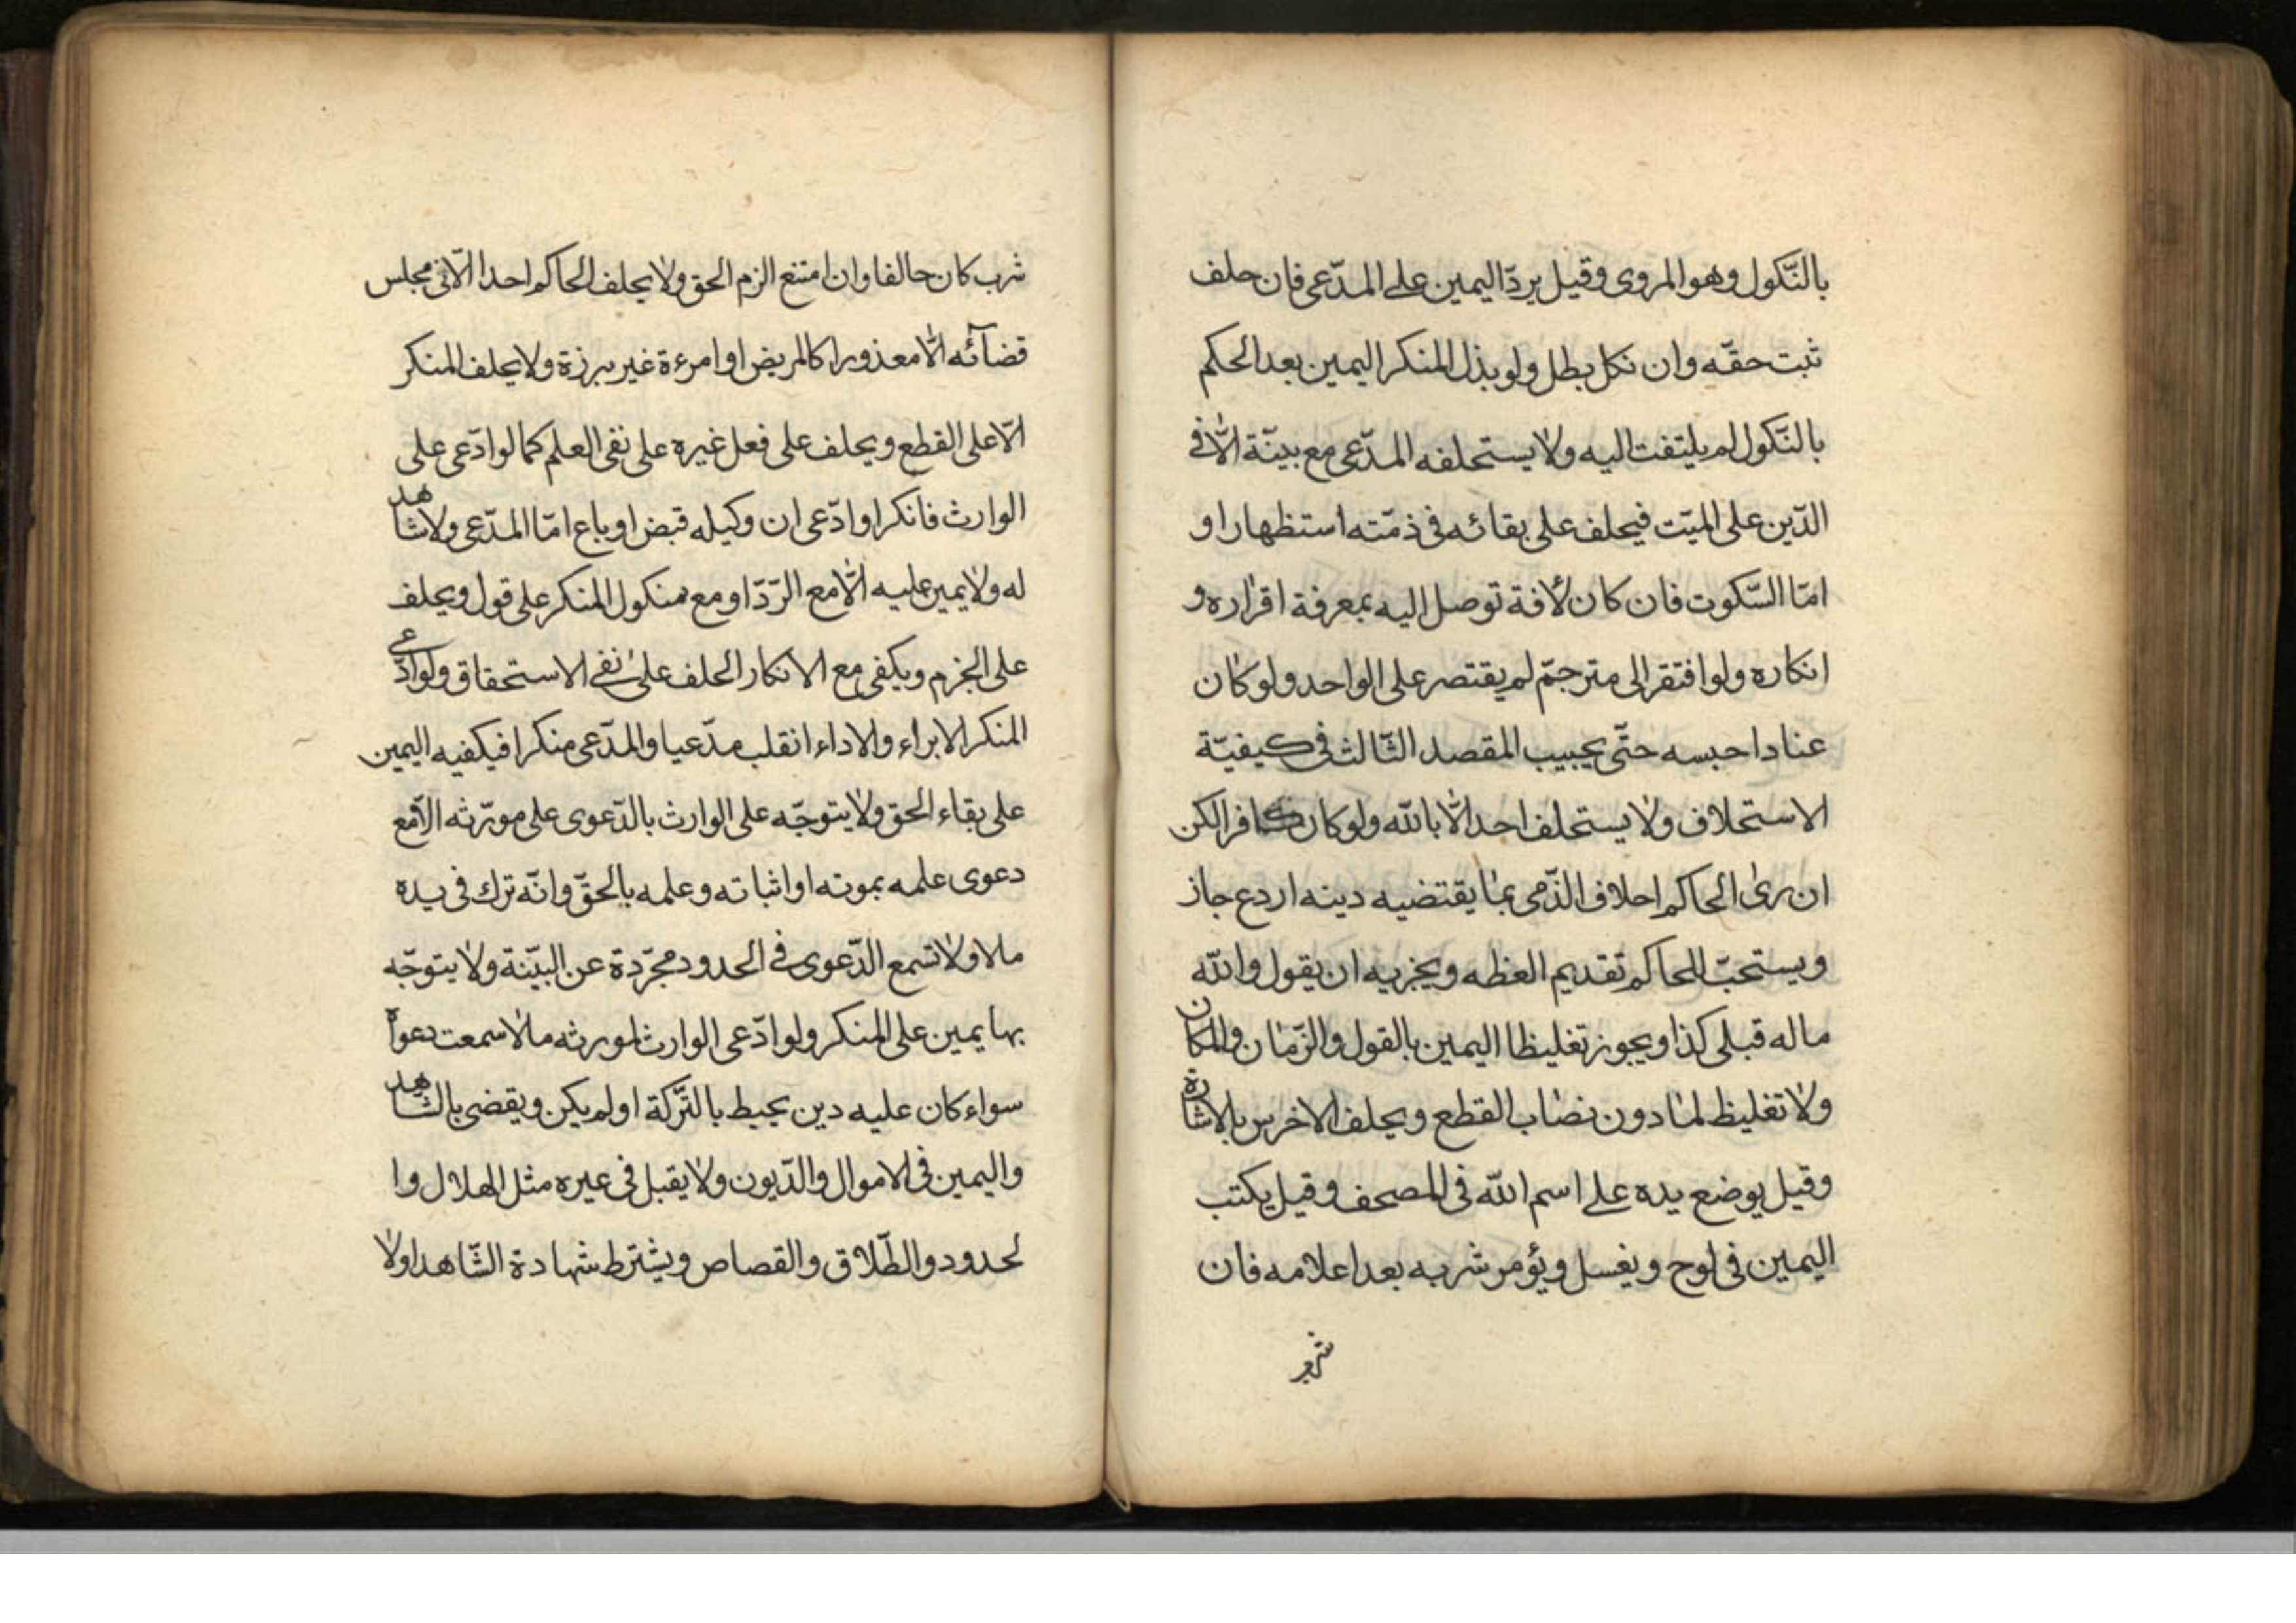 بالنّكول وهو المروى وقيل يردّ اليمين على المدّعى فان حلف
ثبت حقّه وان نكل بطل ولو بذل المنكر اليمين بعد الحكم
بالنّكول لم يلتفت اليه ولا يستحلفه المدّعى مع بيّنة الّا فى
الدّين على الميّت فيحلف على بقائه فى ذمّته استظهارا و
امّا السّكوت فان كان لآفة توصل اليه بمعرفة اقراره و
انكاره ولو افتقر الى مترجمّ لم يقتصر على الواحد ولو كان
عنادا حبسه حتّى يجيب المقصد الثّالث فى كيفيّة
الاستحلاف ولا يستحلف احد الّا بالله ولو كان كافرا لكن
ان رى الحاكم احلاف الذّمى بما يقتضيه دينه اردع جاز
ويستحبّ للحاكم تقديم العظه ويجزيه ان يقول والله
ماله قبلى كذا ويجوز تغليظا اليمين بالقول والزّمان والمكان
ولا تغليظ لما دون نصاب القطع ويحلف الاخرس بالاشارة
وقيل يوضع يده على اسم الله فى المصحف وقيل يكتب
اليمين فى لوح ويغسل ويؤمر شربه بعد اعلامه فان
شرب
شرب كان حالفا وان امتنع الزم الحق ولا يحلف الحاكم احدا الّا فى مجلس
قضآئه الّا معذورا كالمريض او امرءة غير برزة ولا يحلف المنكر
الّا على القطع ويحلف على فعل غيره على نفى العلم كما لو ادّعى على
الوارث فانكر او ادّعى ان وكيله قبض او باع امّا المدّعى ولا شاهد
له ولا يمين عليه الّا مع الرّدّ او مع منكول المنكر على قول ويحلف
على الجزم ويكفى مع الانكار الحلف على نفى الاستحقاق ولو ادّعى
المنكر الابراء والاداء انقلب مدّعيا والمدّعى منكرا فيكفيه اليمين
على بقاء الحق ولا يتوجّه على الوارث بالدّعوى على مورّثه الّا مع
دعوى علمه بموته او اثباته وعلمه بالحقّ وانّه ترك فى يده
مالا ولا تسمع الدّعوى فى الحدود مجرّدة عن البيّنة ولا يتوجّه
بها يمين على المنكر ولو ادّعى الوارث لمورثه مالا سمعت دعواه
سواء كان عليه دين يحيط بالتّركة او لم يكن ويقضى بالشّاهد
واليمين فى الاموال والدّيون ولا يقبل فى غيره مثل الهلال وا
لحدود والطّلاق والقصاص ويشترط شهادة الشّاهد اولا